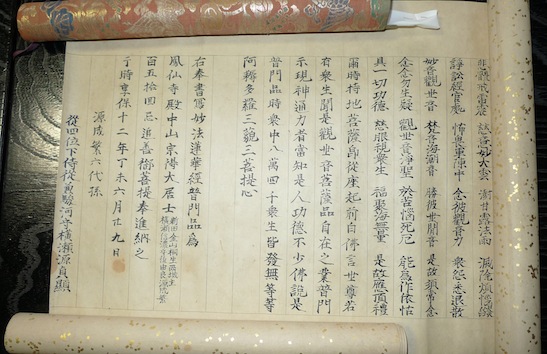 悲體戒雷震 慈意妙大雲 澍甘露法雨 滅除煩惱焔
諍訟經官處 怖畏軍陣中 念彼觀音力 衆怨悉退散
妙音觀世音 梵音海潮音 勝彼世間音 是故須常念
念念勿生疑 觀世音淨聖 於苦惱死厄 能爲作依怙
具一切功德 慈眼視衆生 福聚海無量 是故應頂禮
爾時持地菩薩即從座起前白佛言世尊若
有衆生聞是觀世音菩薩品自在之業普門
示現神通力者當知是人功德不少佛說是
普門品時衆中八萬四千衆生皆發無等等
阿耨多羅三藐三菩提心
右奉書寫妙法蓮華經普門品爲
鳳仙寺殿中山宗陽大居士 新田金山桐生兩城主
横瀬信濃守後由良源成繁
百五拾回忌追善菩提奉進納之
于時享保十二年丁未六月廿九日
源成繁六代孫
從四位下侍從兼駿河守横瀬源貞顕